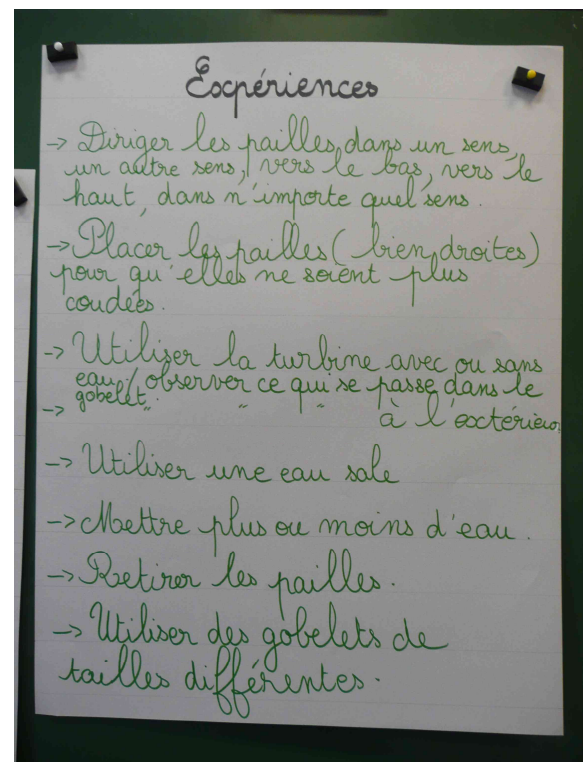 Expériences
-> Diriger les pailles, dans un sens,
un autre sens, vers le bas, vers le
haut, dans n'importe quel sens.
-> Placer les pailles (bien droites)
pour qu'elles ne soient plus
coudées.
-> Utiliser la turbine avec ou sans
eau / observer ce qui se passe dans le
gobelet.
-> " " " à l'extérieur
-> Utiliser une eau sale
-> Mettre plus ou moins d'eau.
-> Retirer les pailles.
-> Utiliser des gobelets de
tailles différentes.